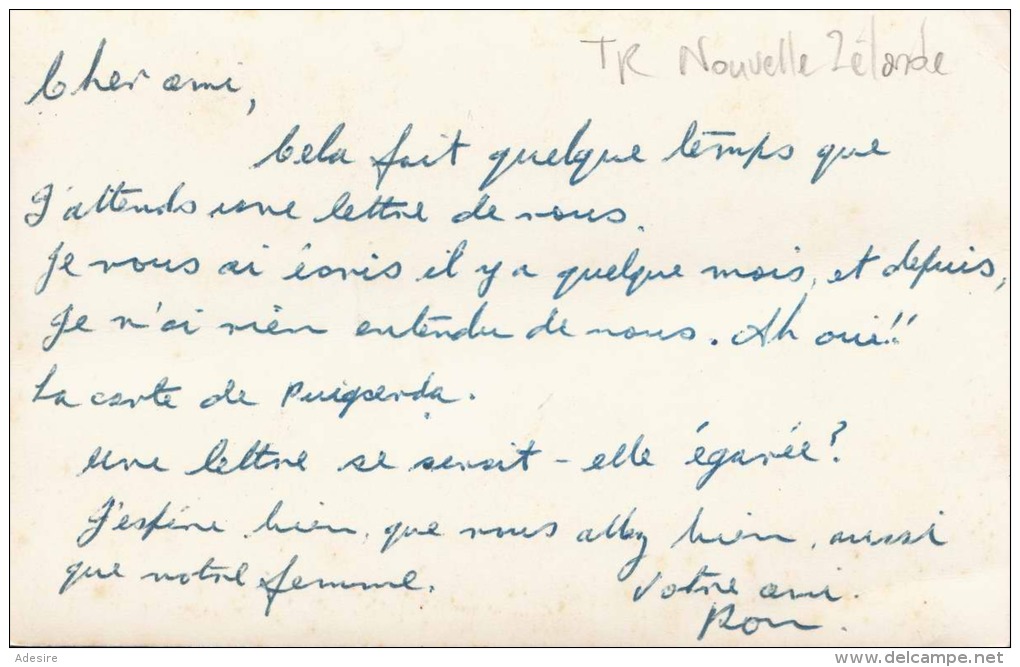 TR Nouvelle Zélande
Cher ami,
Cela fait quelque temps que
J'attends une lettre de vous.
Je vous ai écris il y a quelque mois, et depuis,
Je n'ai rien entendu de vous. Ah oui!!
La carte de Puigcerda.
Une lettre se serait-elle égarée?
J'espère bien, que vous allez bien, aussi
que votre femme.
Votre ami.
Ron.
Adesire
http://www.delcampe.net